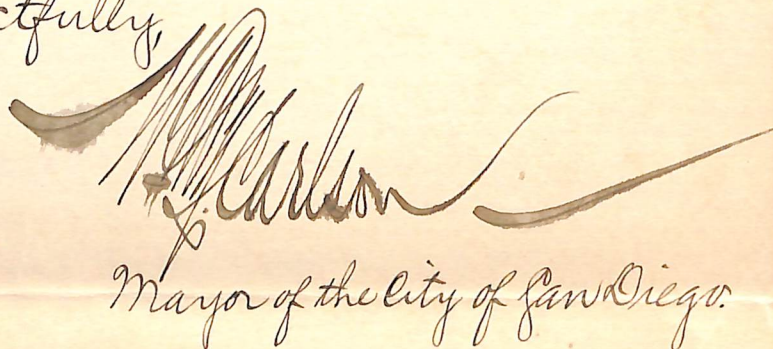 ctfully,
Wm. H. Carlson
Mayor of the City of San Diego.